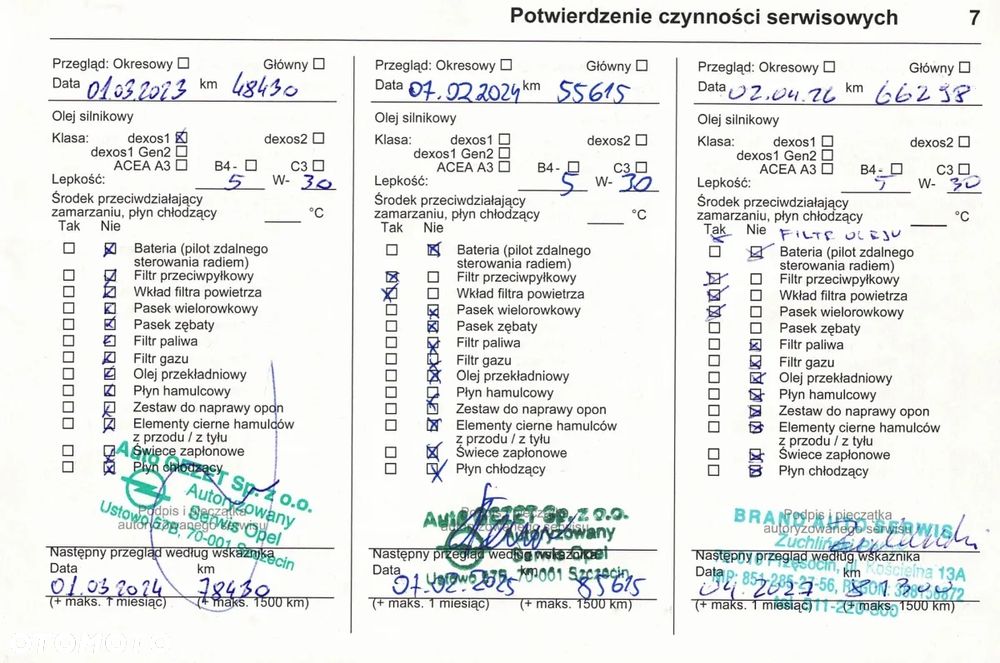 Potwierdzenie czynności serwisowych 7
Przegląd: Okresowy Główny
Data 01.03.2023 km 48430
Olej silnikowy
Klasa: dexos1 dexos2
dexos1 Gen2
ACEA A3 B4- C3
Lepkość: 5 W- 30
Środek przeciwdziałający
zamarzaniu, płyn chłodzący °C
Tak Nie
Bateria (pilot zdalnego
sterowania radiem)
Filtr przeciwpyłkowy
Wkład filtra powietrza
Pasek wielorowkowy
Pasek zębaty
Filtr paliwa
Filtr gazu
Olej przekładniowy
Płyn hamulcowy
Zestaw do naprawy opon
Elementy cierne hamulców
z przodu / z tyłu
Świece zapłonowe
Płyn chłodzący
Auto GEZET Sp. z o.o.
Autoryzowany
Serwis Opel
Ustowo 57B, 70-001 Szczecin
Podpis i pieczątka
autoryzowanego serwisu
Następny przegląd według wskaźnika
01.03.2024 78430
(+ maks. 1 miesiąc) (+ maks. 1500 km)
Przegląd: Okresowy Główny
Data 07.02.2024 km 55615
Olej silnikowy
Klasa: dexos1 dexos2
dexos1 Gen2
ACEA A3 B4- C3
Lepkość: 5 W- 30
Środek przeciwdziałający
zamarzaniu, płyn chłodzący °C
Tak Nie
Bateria (pilot zdalnego
sterowania radiem)
Filtr przeciwpyłkowy
Wkład filtra powietrza
Pasek wielorowkowy
Pasek zębaty
Filtr paliwa
Filtr gazu
Olej przekładniowy
Płyn hamulcowy
Zestaw do naprawy opon
Elementy cierne hamulców
z przodu / z tyłu
Świece zapłonowe
Płyn chłodzący
Auto GEZET Sp. z o.o.
Autoryzowany
Serwis Opel
Ustowo 57B, 70-001 Szczecin
autoryzowanego serwisu
Następny przegląd według wskaźnika
km
07.02.2025 85615
(+ maks. 1 miesiąc) (+ maks. 1500 km)
Przegląd: Okresowy Główny
Data 02.04.26 km 66298
Olej silnikowy
Klasa: dexos1 dexos2
dexos1 Gen2
ACEA A3 B4- C3
Lepkość: 5 W- 30
Środek przeciwdziałający
zamarzaniu, płyn chłodzący °C
Tak Nie FILTR OLEJU
Bateria (pilot zdalnego
sterowania radiem)
Filtr przeciwpyłkowy
Wkład filtra powietrza
Pasek wielorowkowy
Pasek zębaty
Filtr paliwa
Filtr gazu
Olej przekładniowy
Płyn hamulcowy
Zestaw do naprawy opon
Elementy cierne hamulców
z przodu / z tyłu
Świece zapłonowe
Płyn chłodzący
Podpis i pieczątka
autoryzowanego serwisu
BRAND AUTO SERWIS
Następny przegląd według wskaźnika
Data km
Kościelna 13A
04.2027
(+ maks. 1 miesiąc) (+ maks. 1500 km)
OTOMOTO